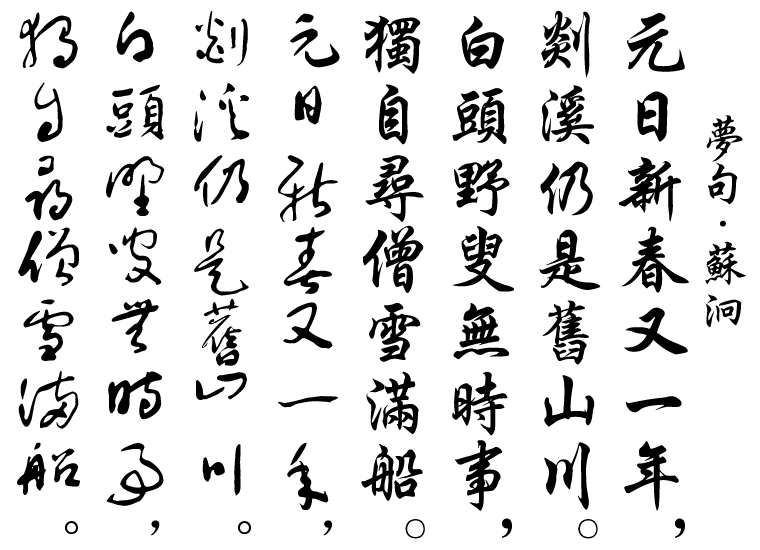 夢句·蘇泂
元日新春又一年，
剡溪仍是舊山川。
白頭野叟無時事，
獨自尋僧雪滿船。
元日新春又一年，
剡溪仍是舊山川。
白頭野叟無時事，
獨自尋僧雪滿船。